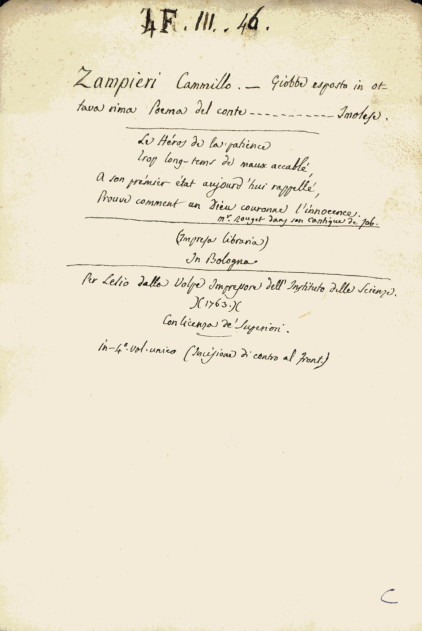 4F. III. 46.
Zampieri Cammillo. — Giobbe esposto in ot-
tava rima Poema del conte ------------ Imolese.
Le Héros de la patience
trop long-tems de maux accablé,
A son prémier état aujourd'hui rappellé,
Prouve comment un Dieu couronne l'innocence.
Mr. Rouget dans son cantique de Job.
(Impresa libraria)
In Bologna
Per Lelio dalla Volpe Impressore dell'Instituto delle Scienze.
)(1763.)(
Con licenza de' Superiori.
in-4°. vol. unico (Incisione di contro al front.)
C